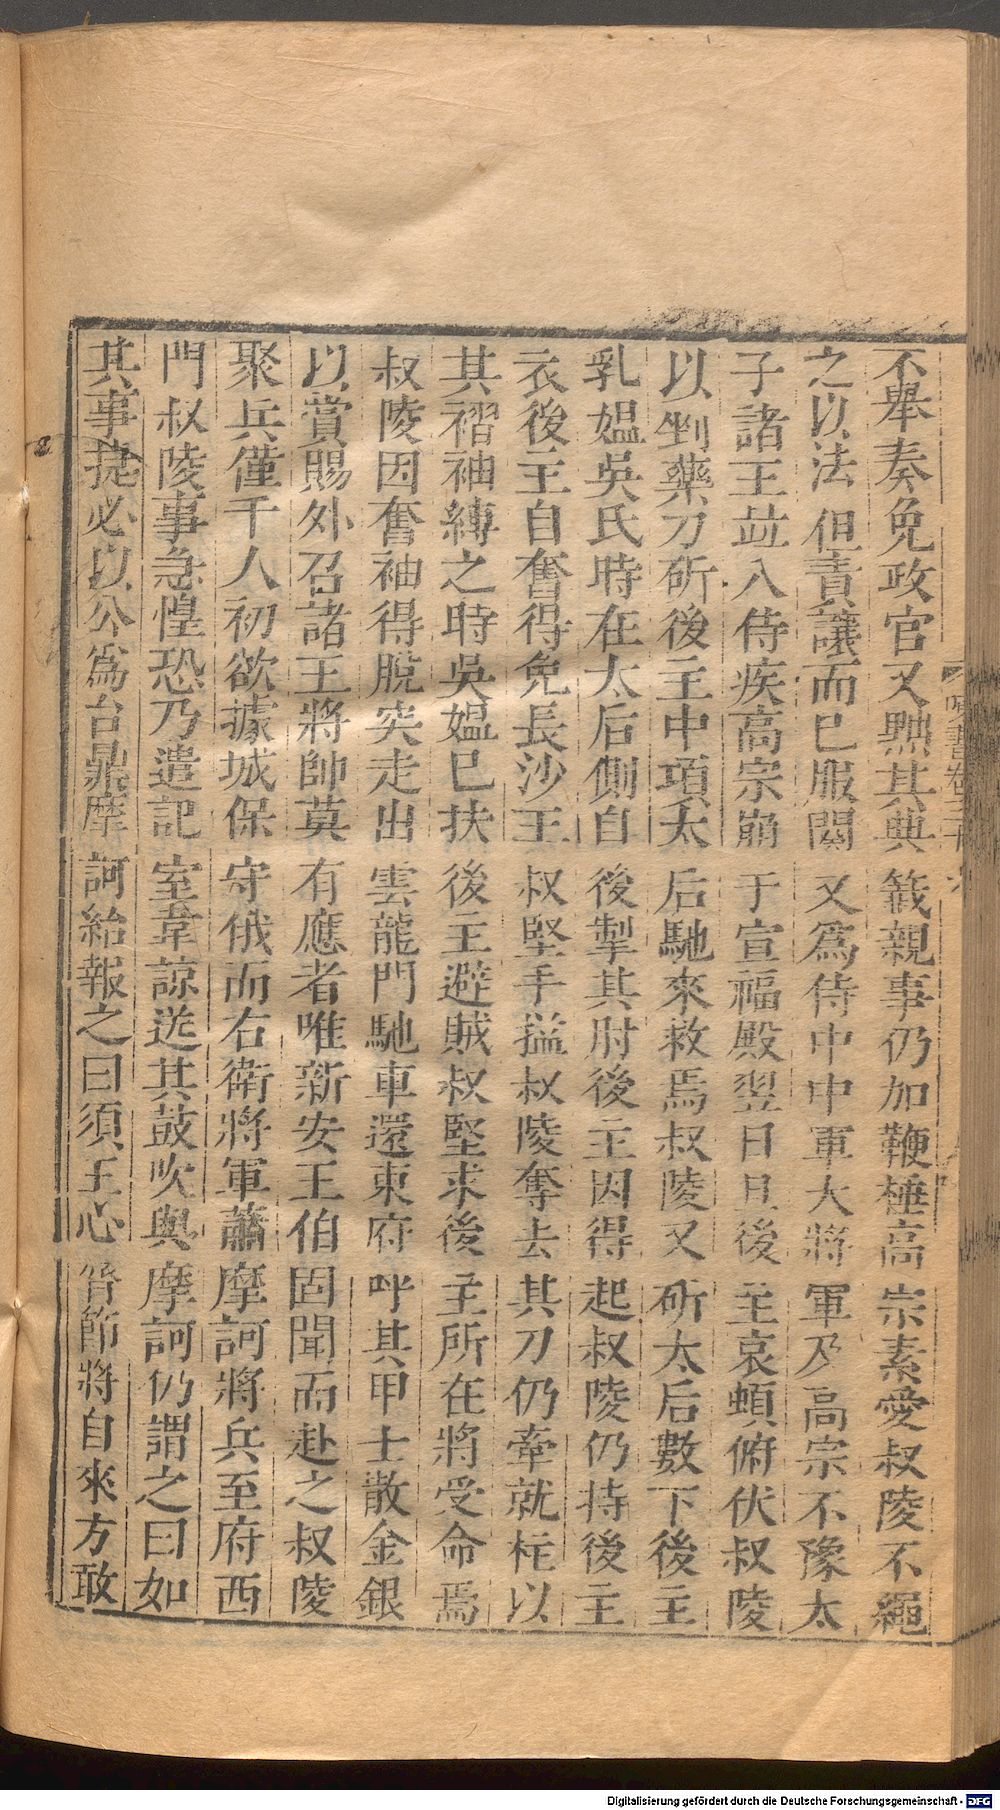 不舉奏免政官又黜其典籤親事仍加鞭棰高宗素愛叔陵不繩
之以法但責讓而已服闋又爲侍中中軍大將軍乃高宗不豫太
子諸王竝入侍疾高宗崩于宣福殿翌日旦後主哀頓俯伏叔陵
以剉藥刀斫後主中項太后馳來救焉叔陵又斫太后數下後主
乳媼吳氏時在太后側自後掣其肘後主因得起叔陵仍持後主
衣後主自奮得免長沙王叔堅手搤叔陵奪去其刀仍牽就柱以
其褶袖縛之時吳媼已扶後主避賊叔堅求後主所在將受命焉
叔陵因奮袖得脫突走出雲龍門馳車還東府呼其甲士散金銀
以賞賜外召諸王將帥莫有應者唯新安王伯固聞而赴之叔陵
聚兵僅千人初欲據城保守俄而右衛將軍蕭摩訶將兵至府西
門叔陵事急惶恐乃遣記室韋諒送其鼓吹與摩訶仍謂之曰如
其事捷必以公爲台鼎摩訶紿報之曰須王心膂節將自來方敢
陳書卷三十六
Digitalisierung gefördert durch die Deutsche Forschungsgemeinschaft - DFG